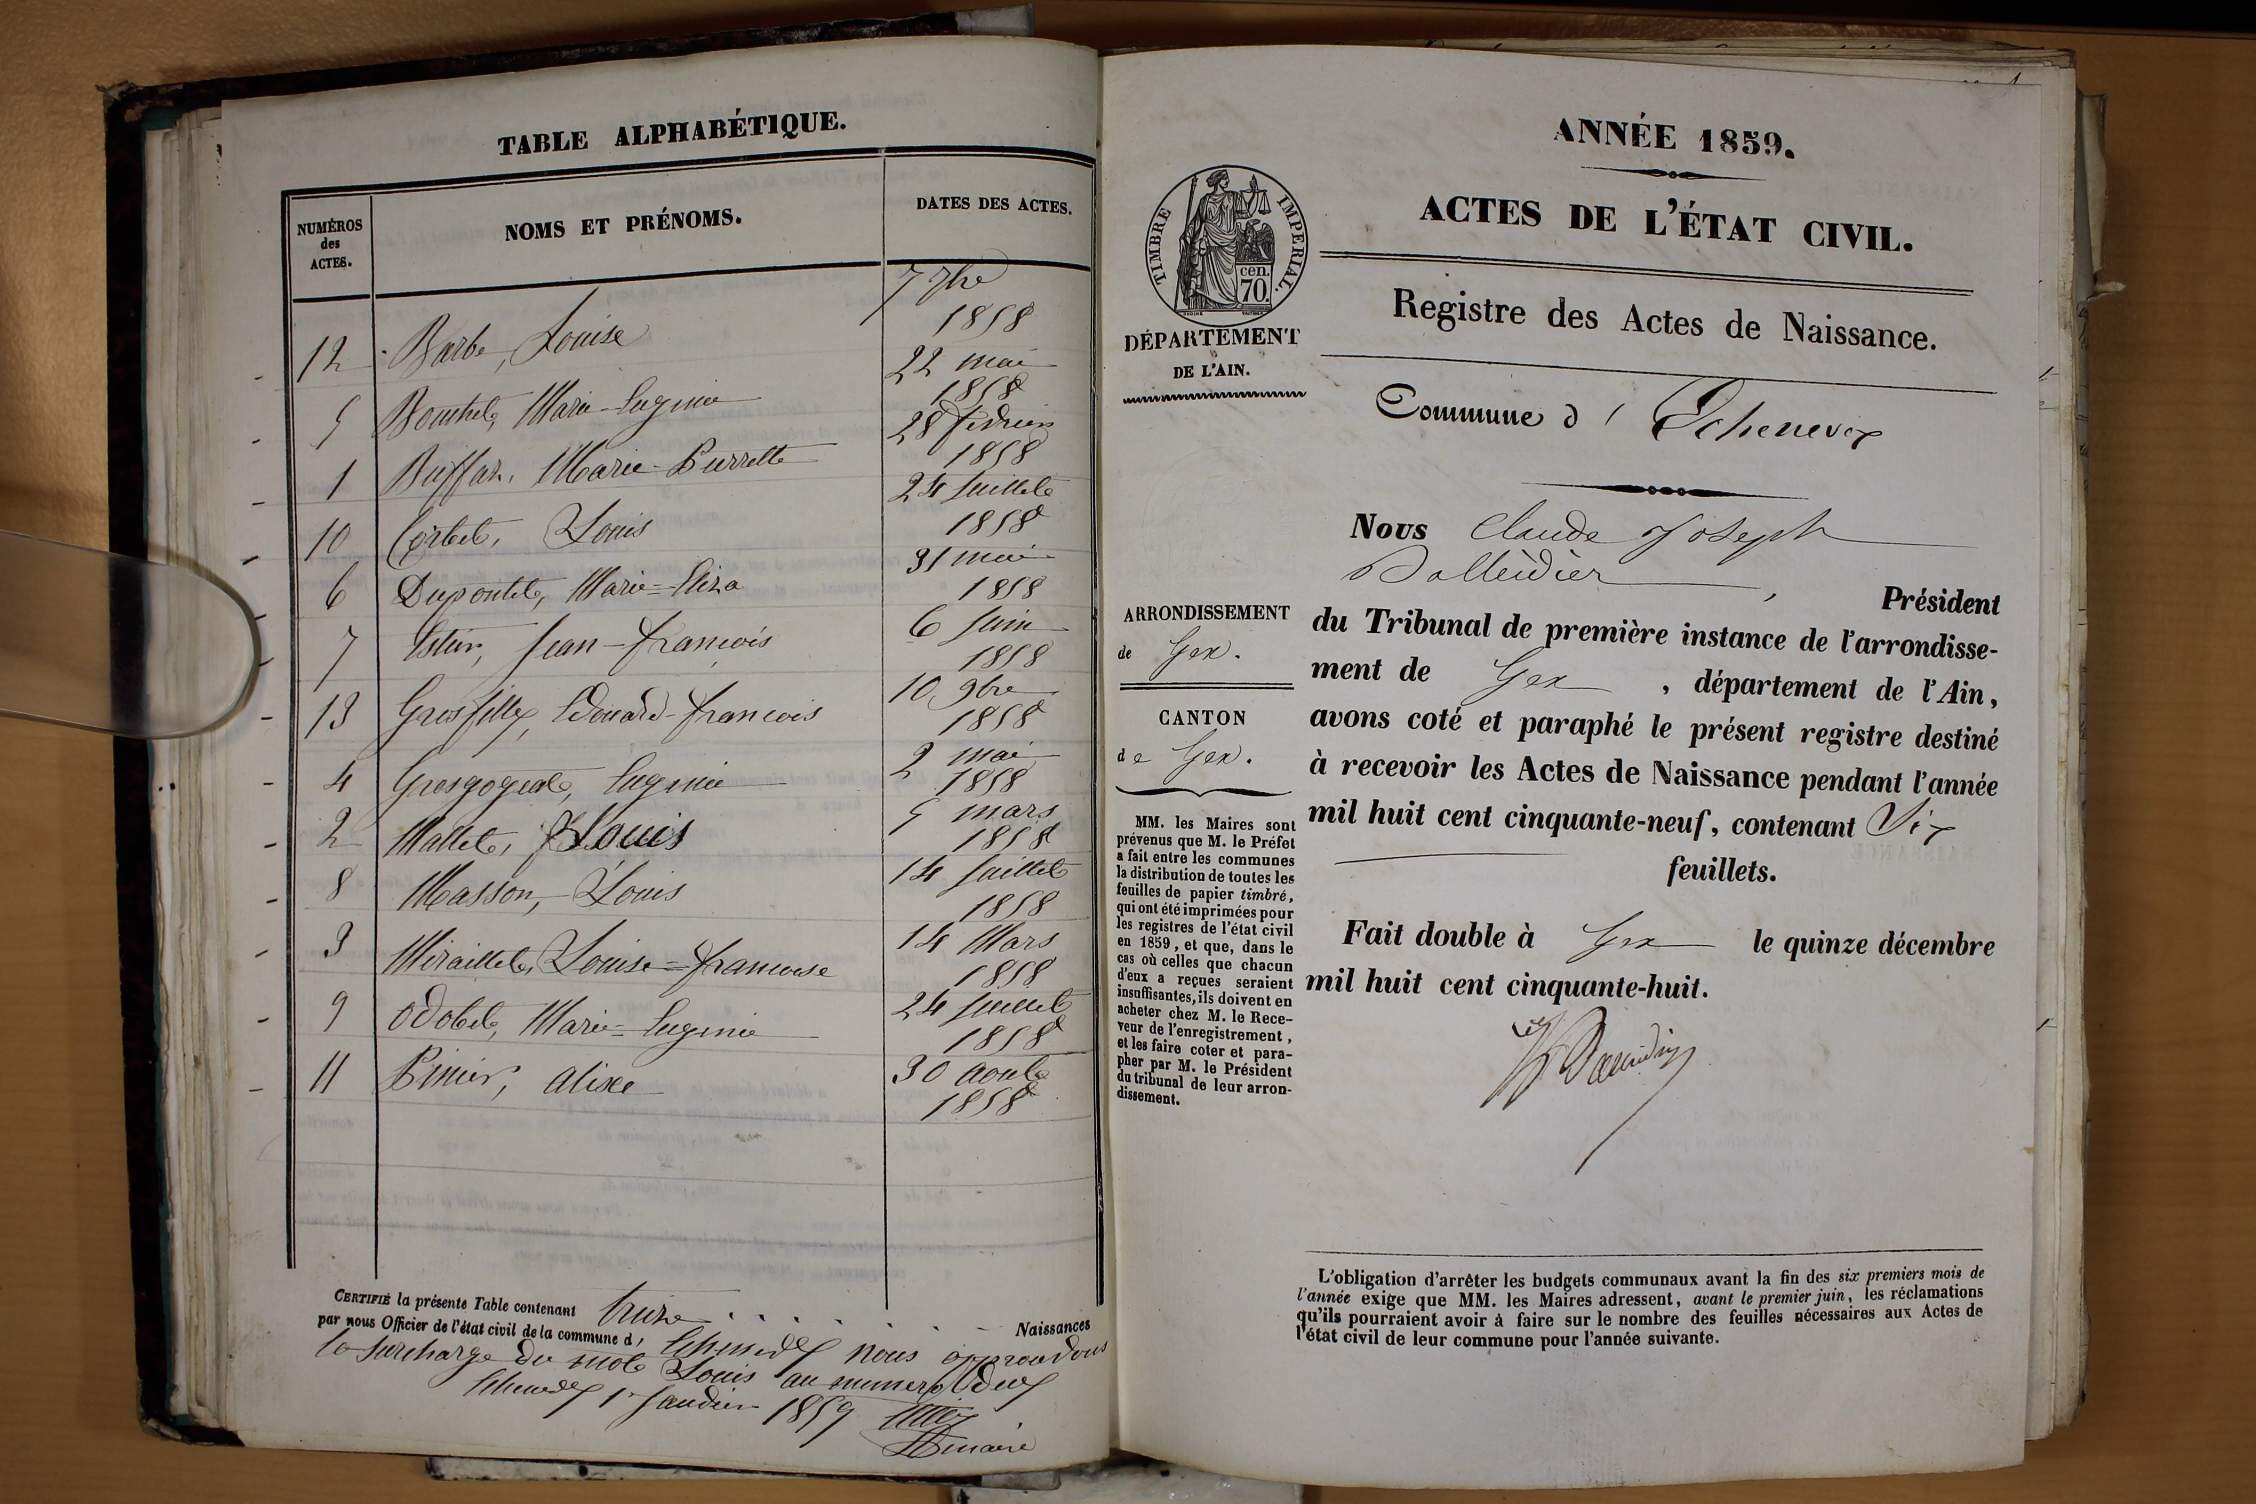 TABLE ALPHABÉTIQUE.
NUMÉROS
des
ACTES.
NOMS ET PRÉNOMS.
DATES DES ACTES.
12 Barbe, Louise 7 7bre 1858
5 Bouchet, Marie-Eugénie 22 mai 1858
1 Buffaz, Marie-Pierrette 28 février 1858
10 Corbet, Louis 24 Juillet 1858
6 Dupontet, Marie=Eliza 31 mai 1858
7 Estier, Jean-François 6 Juin 1858
13 Grosfilley, Edouard-François 10 9bre 1858
4 Grosgogeat, Eugénie 2 mai 1858
2 Mallet, Louis 5 mars 1858
8 Masson, Louis 14 Juillet 1858
3 Miraillet, Louise=Françoise 14 Mars 1858
9 Odobet, Marie=Eugénie 24 Juillet 1858
11 Pinier, Alixe 30 août 1858
CERTIFIÉ la présente Table contenant treize Naissances
par nous Officier de l'état civil de la commune d' Echenevex nous approuvons
la surcharge du mot Louis au numéro deux
Echenevex 1er Janvier 1859
ANNÉE 1859.
ACTES DE L'ÉTAT CIVIL.
Registre des Actes de Naissance.
TIMBRE IMPERIAL.
cen.
70.
DÉPARTEMENT
DE L'AIN.
Commune d' Echenevex
Nous Claude Joseph
Balleidier, Président
du Tribunal de première instance de l'arrondisse-
ment de Gex, département de l'Ain,
avons coté et paraphé le présent registre destiné
à recevoir les Actes de Naissance pendant l'année
mil huit cent cinquante-neuf, contenant Six
feuillets.
Fait double à Gex le quinze décembre
mil huit cent cinquante-huit.
ARRONDISSEMENT
de Gex.
CANTON
de Gex.
MM. les Maires sont
prévenus que M. le Préfet
a fait entre les communes
la distribution de toutes les
feuilles de papier timbré,
qui ont été imprimées pour
les registres de l'état civil
en 1859, et que, dans le
cas où celles que chacun
d'eux a reçues seraient
insuffisantes, ils doivent en
acheter chez M. le Rece-
veur de l'enregistrement,
et les faire coter et para-
pher par M. le Président
du tribunal de leur arron-
dissement.
L'obligation d'arrêter les budgets communaux avant la fin des six premiers mois de
l'année exige que MM. les Maires adressent, avant le premier juin, les réclamations
qu'ils pourraient avoir à faire sur le nombre des feuilles nécessaires aux Actes de
l'état civil de leur commune pour l'année suivante.